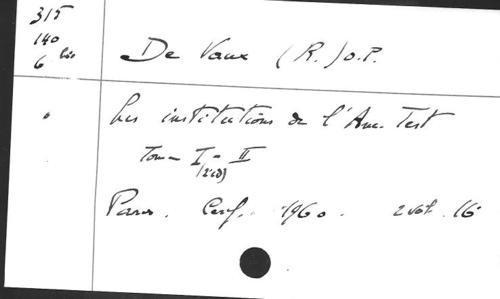 315
140
6 bis
De Vaux (R.) O.P.
Les institutions de l'Anc. Test
Tome I - II
(2 éd)
Paris. Cerf. 1960. 2 vol. 16